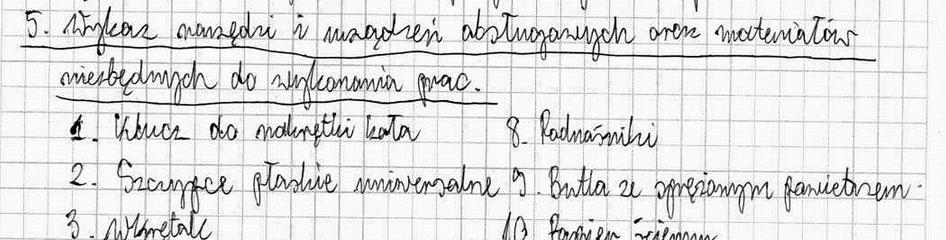 5. Wykaz narzędzi i urządzeń obsługowych oraz materiałów
niezbędnych do wykonania prac.
1. Klucz do nakrętki koła
8. Podnośniki
2. Szczypce płaskie uniwersalne
9. Butla ze sprężonym powietrzem.
3. Wkrętak
10.